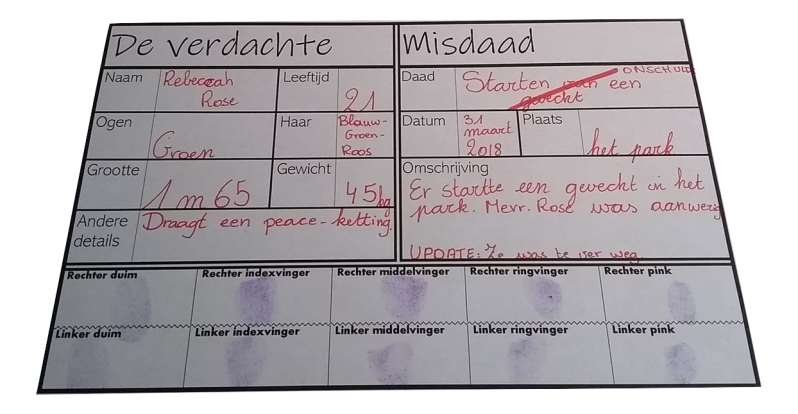 De verdachte
Naam Rebeccah
Rose
Leeftijd 21
Ogen Groen
Haar Blauw-
Groen-
Roos
Grootte 1 m 65
Gewicht 45 kg
Andere
details
Draagt een peace-ketting.
Misdaad
Daad Starten van een
gevecht
ONSCHULD
Datum 31
maart
2018
Plaats het park
Omschrijving
Er startte een gevecht in het
park. Mevr. Rose was aanwezig
UPDATE: Ze was te ver weg
Rechter duim Rechter indexvinger Rechter middelvinger Rechter ringvinger Rechter pink
Linker duim Linker indexvinger Linker middelvinger Linker ringvinger Linker pink